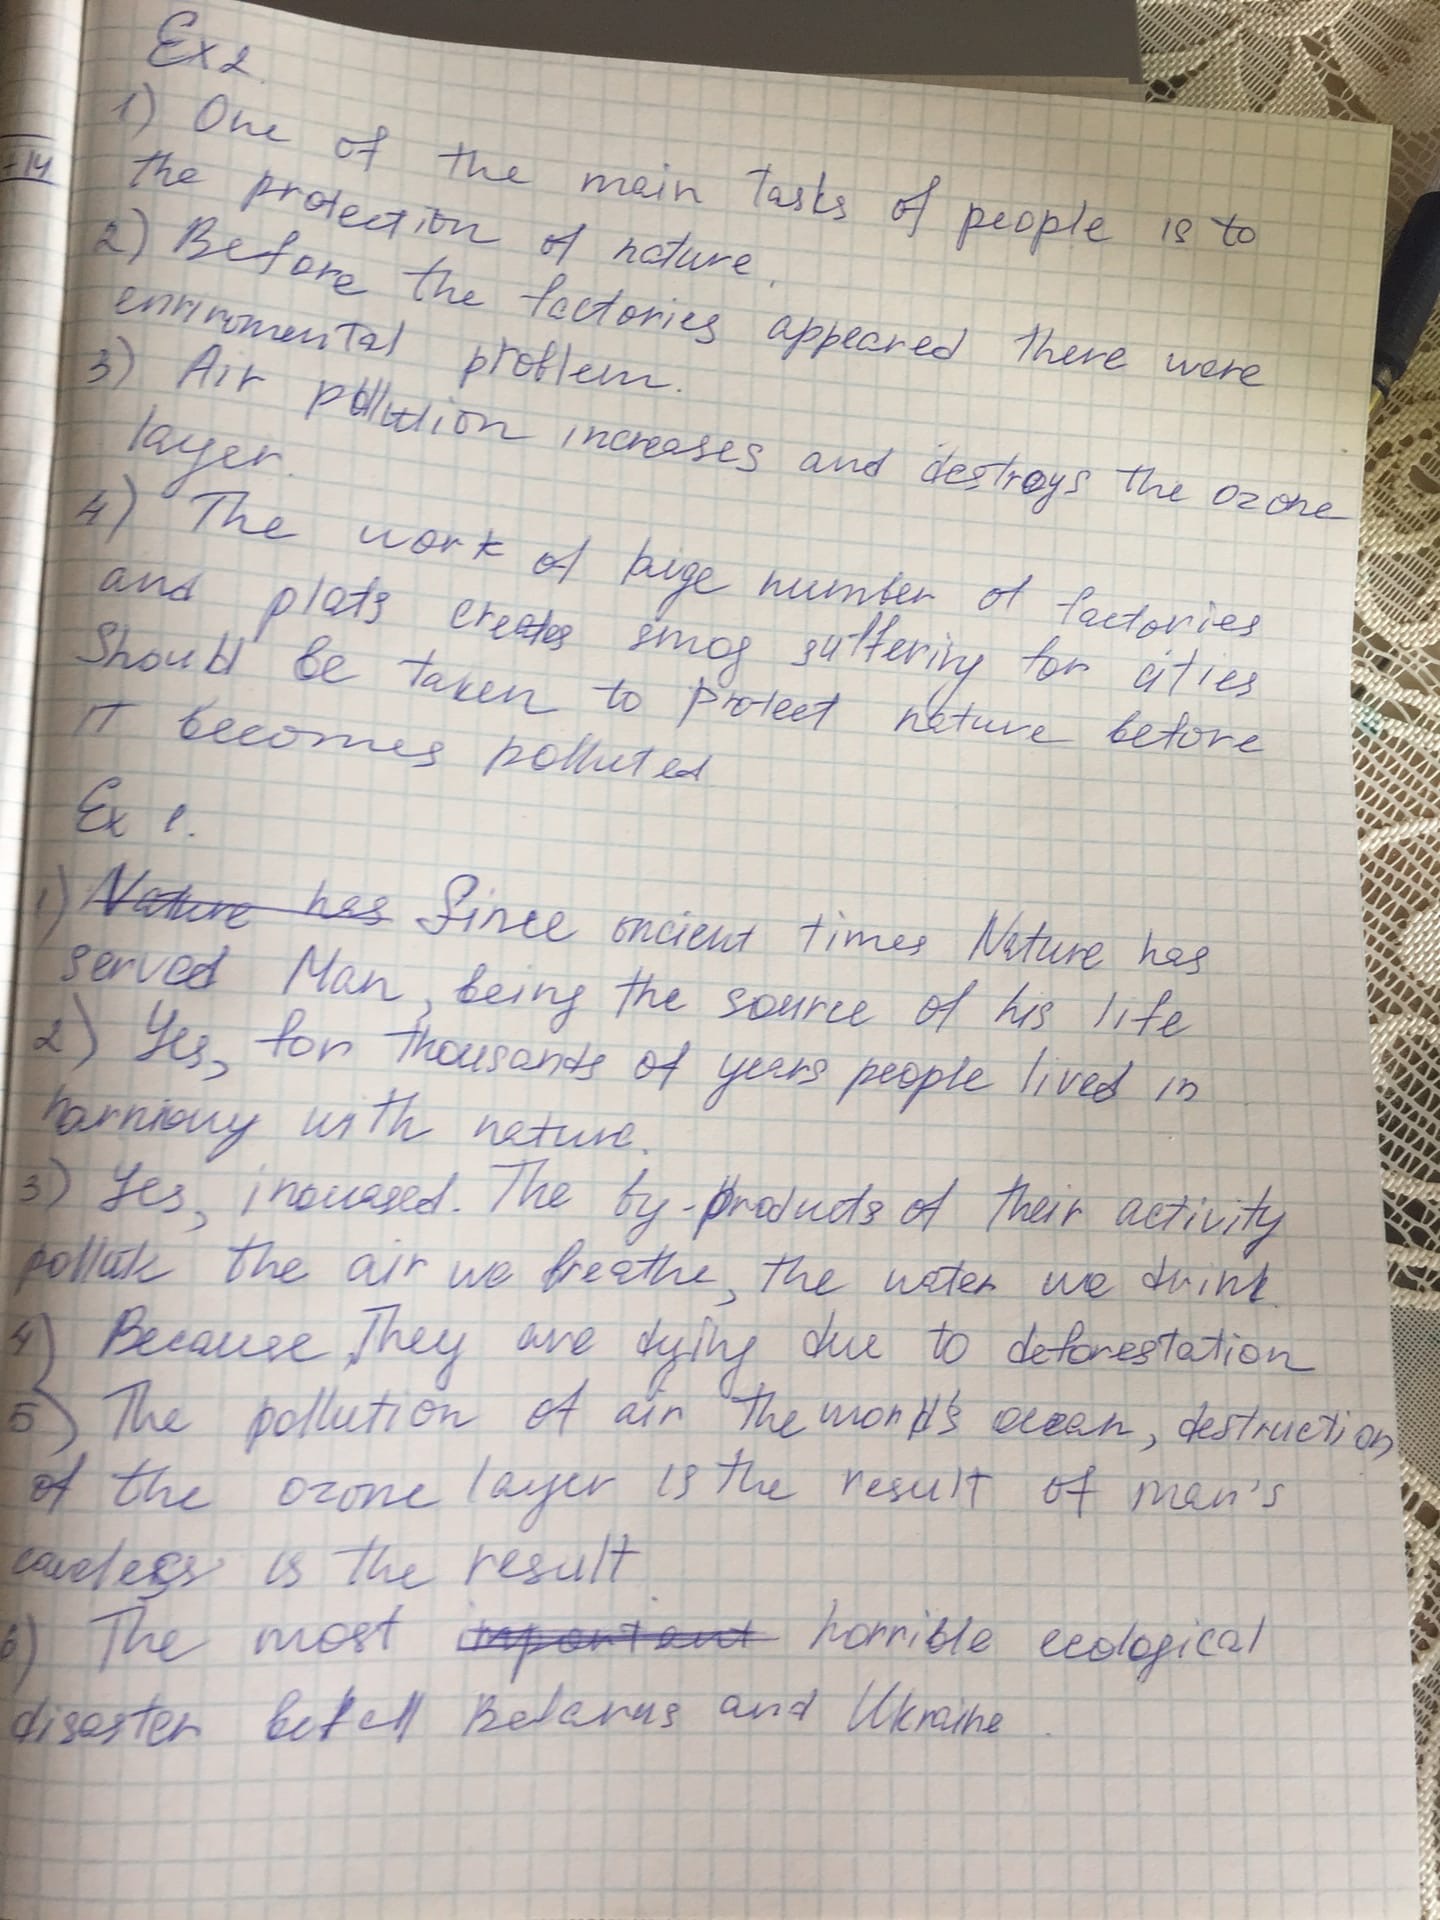 Ex 2.
-14
1) One of the main tasks of people is to
the protection of nature.
2) Before the factories appeared there were
enviromental problem.
3) Air pollution increases and destroys the ozone
layer.
4) The work of huge number of factories
and plats creates smog suffering for cities
Should be taken to protect nature before
it becomes polluted
Ex 1.
1) Nature has Since ancient times Nature has
served Man, being the source of his life
2) Yes, for thousands of years people lived in
harmony with nature.
3) Yes, increased. The by-products of their activity
pollute the air we breathe, the water we drink.
4) Because, They are dying due to deforestation
5) The pollution of air the world's ocean, destruction
of the ozone layer is the result of man's
careless is the result
6) The most important horrible ecological
disaster befell Belarus and Ukraine.